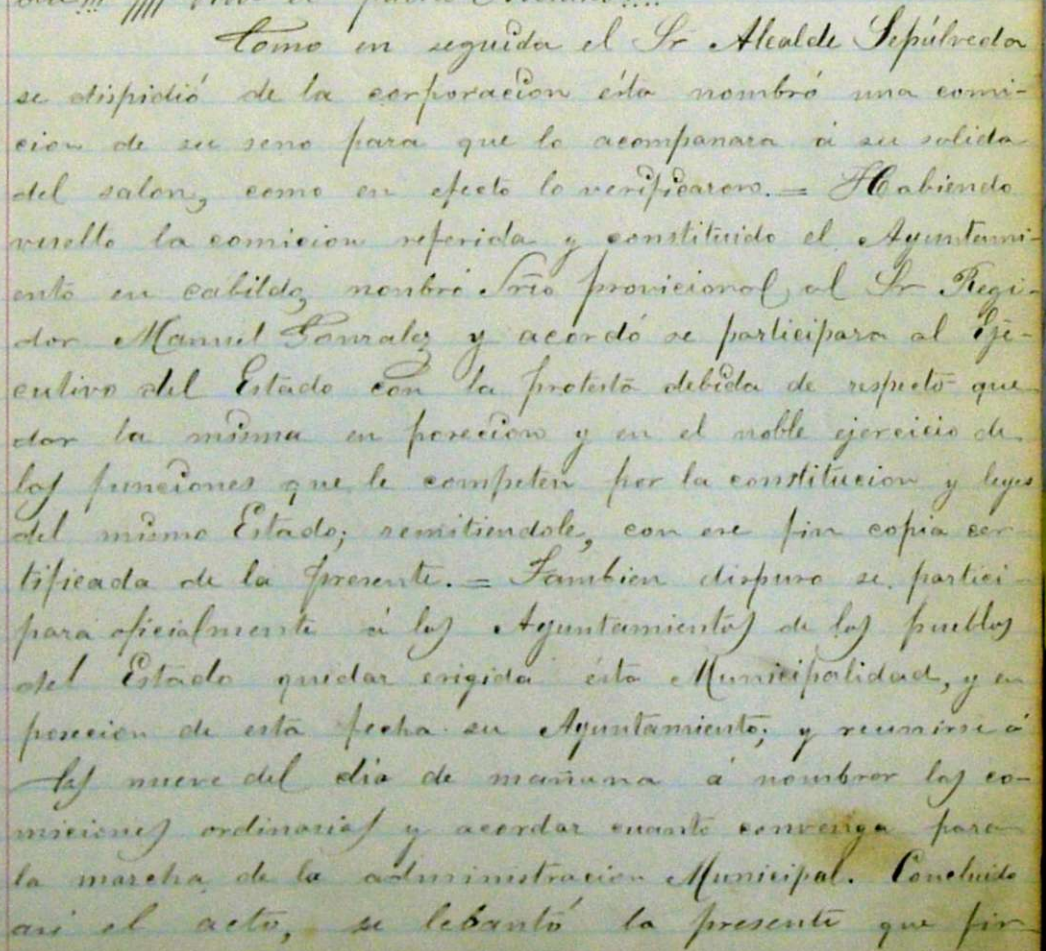 Como en seguida el Sr Alcalde Sepúlveda
se dispidió de la corporacion ésta nombró una comi-
cion de su seno para que lo acompanara á su salida
del salon, como en efecto lo verificaron. = Habiendo
vuelto la comicion referida y constituido el Ayuntami-
ento en cabildo, nonbró Srio provicional al Sr Regi-
dor Manuel Gonzalez y acordó se participara al Eje-
cutivo del Estado con la protesta debida de respecto que
dar la misma en posecion y en el noble ejercicio de
las funciones que le competen por la constitucion y leyes
del mismo Estado; remitiendole, con ese fin copia cer-
tificada de la presente. = Tambien dispuso se partici-
para oficialmente á los Ayuntamientos de los pueblos
del Estado quedar erigida ésta Municipalidad, y en
posecion de esta fecha su Ayuntamiento; y reunirse á
las nueve del dia de mañana á nombrar las co-
miciones ordinarias y acordar cuanto convenga para
la marcha de la administracion Municipal. Concluido
asi el acto, se lebantó la presente que fir-